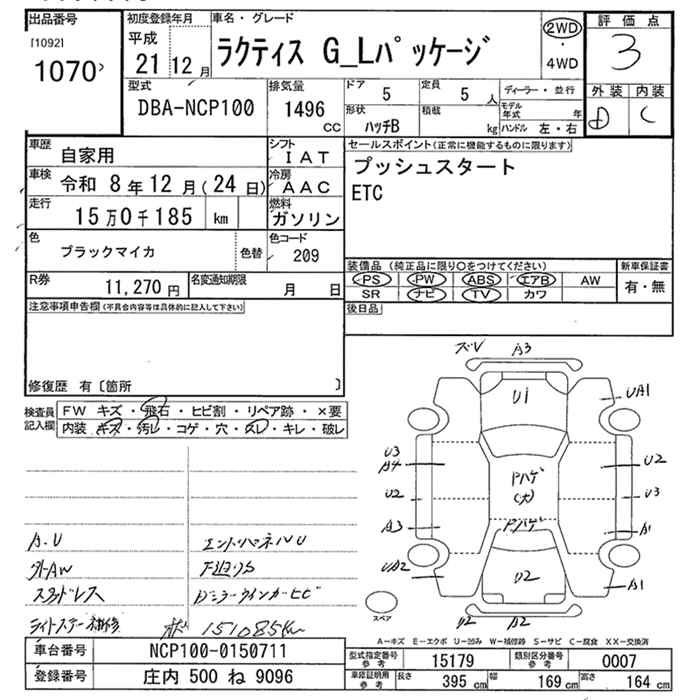 出品番号
[1092]
1070
初度登録年月
平成
21 12月
車名・グレード
ラクティス G_Lパッケージ
2WD
・
4WD
評価点
3
外装 内装
D C
型式
DBA-NCP100
排気量
1496
CC
ドア
5
定員
5 人
形状
ハッチB
積載
kg
ディーラー・並行
モデル年式 年
ハンドル 左・右
車歴 自家用
シフト IAT
車検 令和 8年12月(24日)
冷房 AAC
走行 15万0千185 km
燃料 ガソリン
色 ブラックマイカ 色替
色コード 209
R券 11,270円
名変通知期限 月 日
セールスポイント(正常に機能するものに限ります)
プッシュスタート
ETC
装備品(純正品に限り○をつけてください)
新車保証書
PS PW ABS エアB AW
有・無
SR ナビ TV カワ
後日品
注意事項申告欄(不具合内容等は具体的に記入して下さい)
修復歴 有〔箇所 〕
検査員記入欄
FW キズ・飛石・ヒビ割・リペア跡・×要
内装 キズ・汚レ・コゲ・穴・スレ・キレ・破レ
A.U
エンドパネルU
外AW
下廻りS
スタッドレス
ドアミラーウインカーヒビ
ライトステー補修
151085km
ズレ A3
U1
UA1
U3
A4
U2
U2
U3
Pハゲ
(大)
Pハゲ
A3
A1
UA2
U2
A1
U2 A2
スペア
A-キズ E-エクボ U-凹み W-補修跡 S-サビ C-腐食 XX-交換済
車台番号 NCP100-0150711
登録番号 庄内 500 ね 9096
型式指定番号 参考 15179
類別区分番号 参考 0007
車庫証明用 参考 長さ 395 cm 幅 169 cm 高さ 164 cm